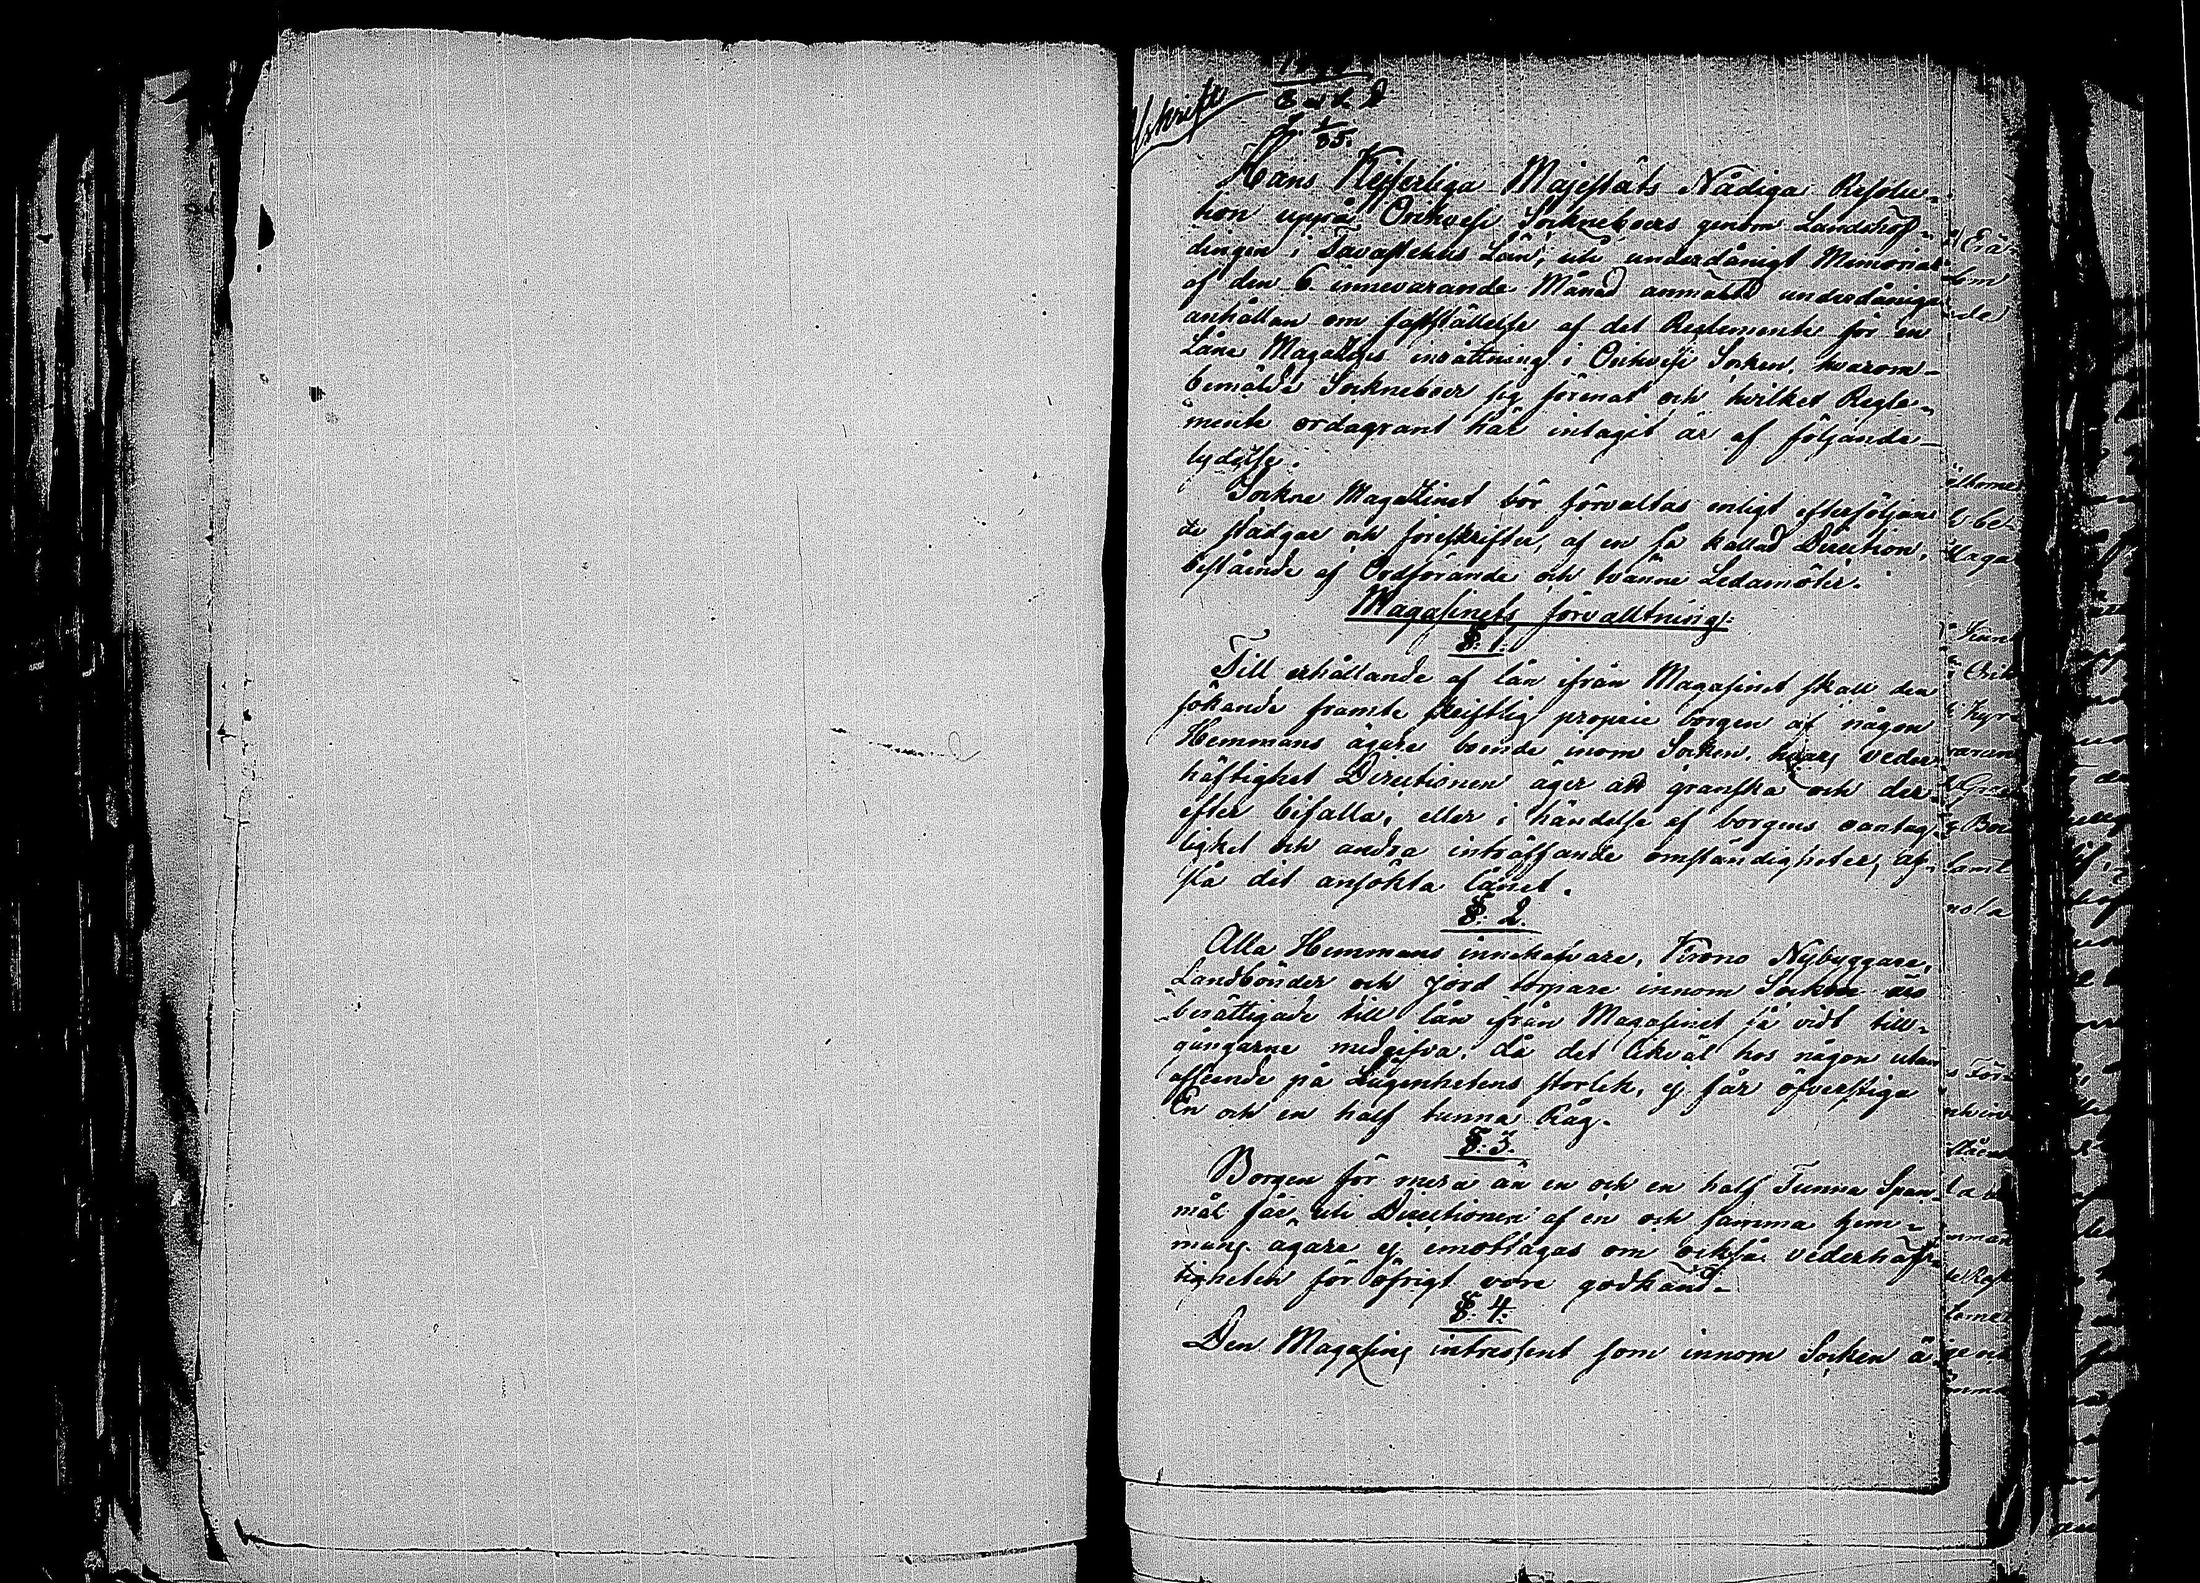 Afskrift
Hans Kejserliga Majestäts Nådiga Resolu-
tion uppå Orihvesi Sockneboers genom Landshöf-
dingen i Tavastehus Län, uti underdånigt Memorial
af den 6 innevarande Månad anmälte underdåniga
anhållan om fastställelse af det Reglemente för en
Låne Magasins inrättning i Orihvesi Socken, hvarom
bemälde Sockneboer sig förenat och hvilket Regle-
mente ordagrant här intagit är af följande
lydelse.
Sockne Magazinet bör förvaltas enligt efterföljan
de stadgar och föreskrifter, af en så kallad Direction,
bestående af Ordförande och tvänne Ledamöter.
Magasinets förvaltning:
§. 1.
Till erhållande af lån ifrån Magasinet skall den
sökande framte skriftlig proprie borgen af någon
Hemmans ägare boende inom Socken, hvars veder
häftighet Directionen äger att granska och der-
efter bifalla, eller i händelse af borgens oantag
lighet och andra inträffande omständigheter, af-
slå det ansökta lånet.
§. 2.
Alla Hemmans innehafvare, Krono Nybyggare,
Landbönder och Jord torpare innom Socken äro
berättigade till lån ifrån Magasinet så vidt till-
gångarne medgifva, då det likväl hos någon utan
afseende på Lägenhetens storlek, ej får öfverstiga
En och en half tunna Råg.
§. 3.
Borgen för mera än en och en half Tunna Span-
mål får uti Directionen af en och samma hem-
mans ägare ej emottagas om också vederhäf-
tigheten för öfrigt vore godkänd.
§. 4.
Den Magasins intressent som innom Socken ä